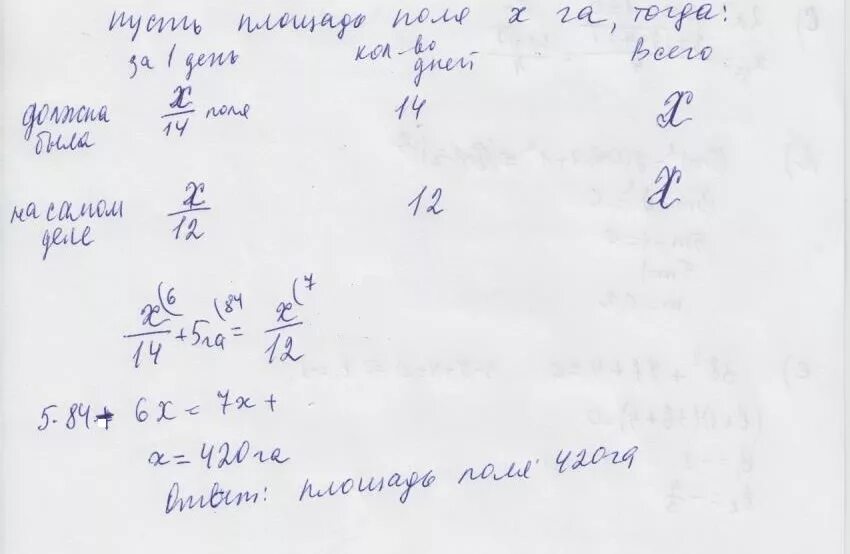 пусть площадь поля x га, тогда:
за 1 день кол-во дней Всего
должна была x/14 поля 14 x
на самом деле x/12 12 x
x(6/14 + 5га(84 = x(7/12
5·84 + 6x = 7x +
x = 420га
Ответ: площадь поля 420га